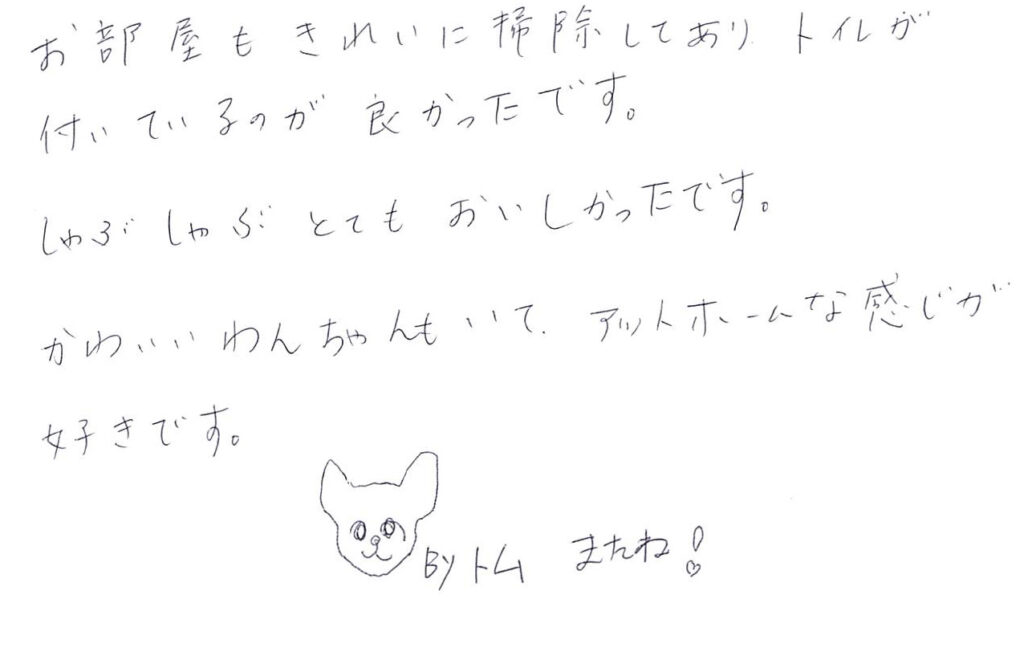 お部屋もきれいに掃除してあり トイレが
付いているのが良かったです。
しゃぶしゃぶとてもおいしかったです。
かわいいわんちゃんもいて、アットホームな感じが
好きです。
BYトム またね!